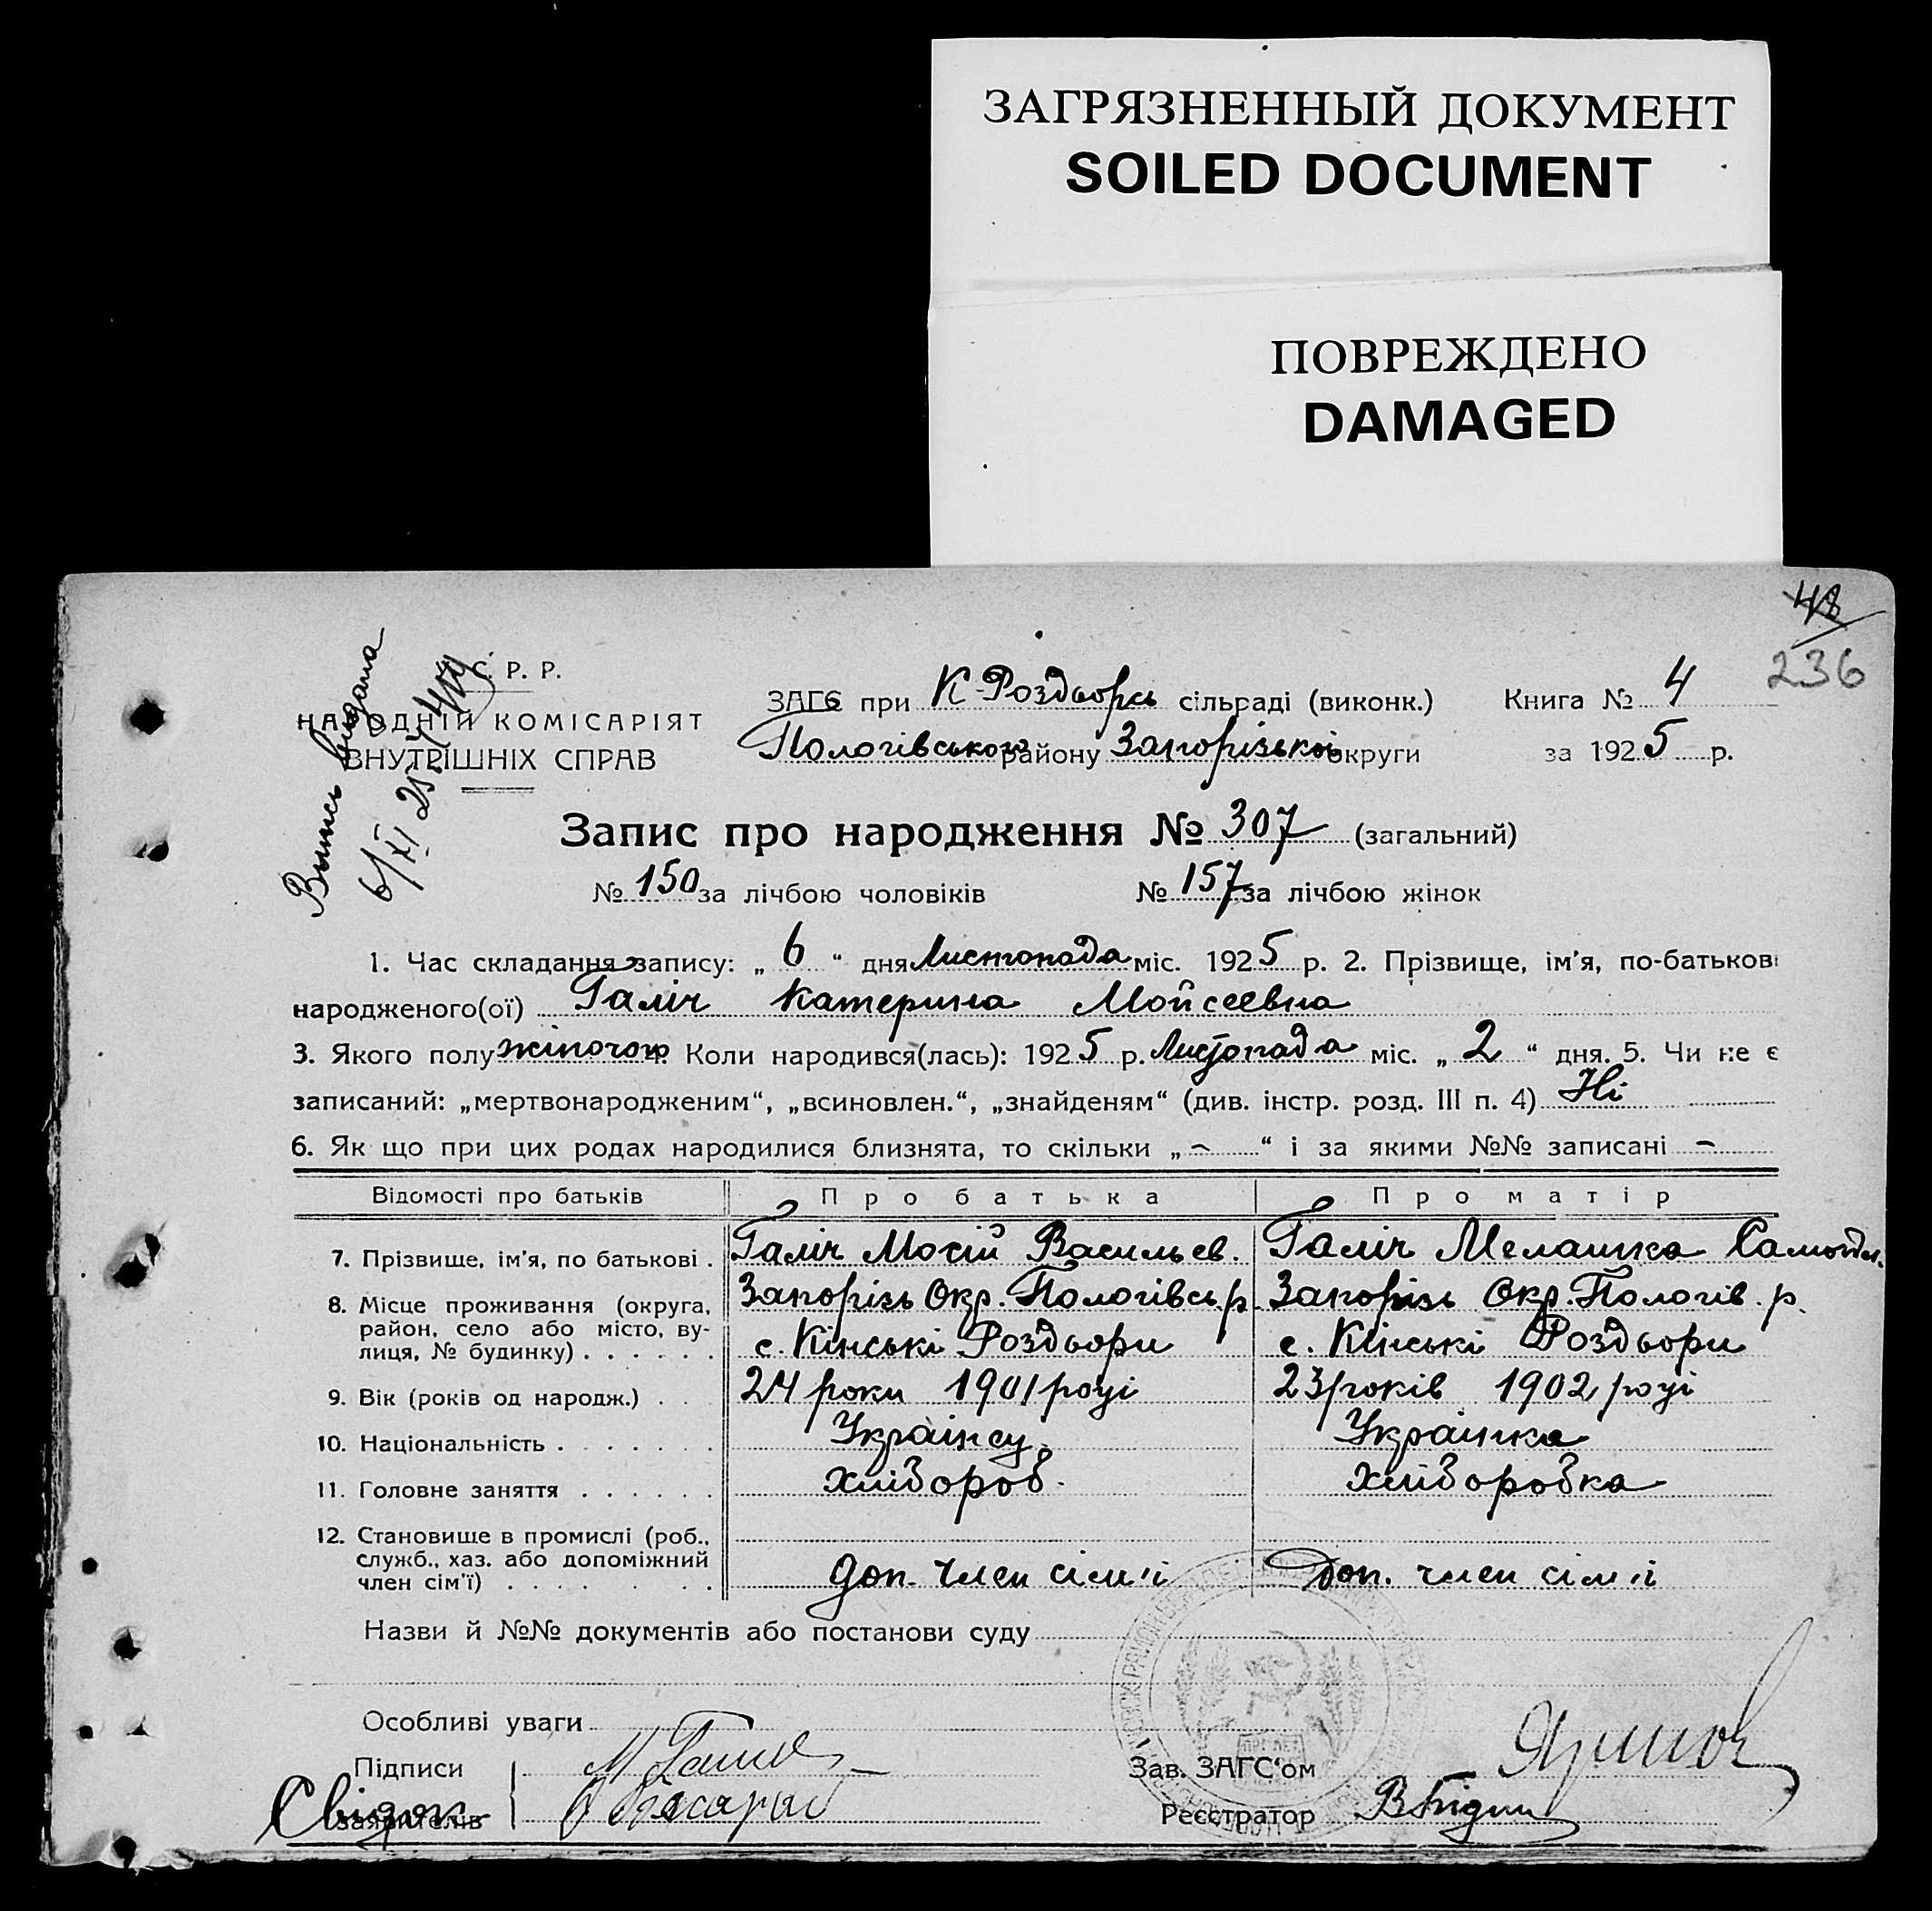 ЗАГРЯЗНЕННЫЙ ДОКУМЕНТ
SOILED DOCUMENT
ПОВРЕЖДЕНО
DAMAGED
48
236
Выпись видана
6/XI 25 р.
С. Р. Р.
НАРОДНІЙ КОМІСАРІЯТ
ВНУТРІШНІХ СПРАВ
ЗАГС при К-Роздорсь сільраді (виконк.) Книга № 4
Пологівського району Запорізькоі округи за 1925 р.
Запис про народження № 307 (загальний)
№ 150 за лічбою чоловіків № 157 за лічбою жінок
1. Час складання запису: „ 6 “ дня Листопада міс. 1925 р. 2. Прізвище, ім'я, по-батькові
народженого(ої) Галіч Катерина Мойсеевна
3. Якого полу жіночого 4. Коли народився(лась): 1925 р. Листопада міс. „ 2 “ дня. 5. Чи не є
записаний: „мертвонародженим“, „всиновлен.“, „знайденям“ (див. інстр. розд. III п. 4) Ні
6. Як що при цих родах народилися близнята, то скільки „ – “ і за якими №№ записані –
Відомості про батьків Про батька Про матір
7. Прізвище, ім'я, по батькові . Галіч Мосій Васильев. Галіч Мелашка Самойл.
8. Місце проживання (округа, район, село або місто, вулиця, № будинку) . . . . . . Запорізь Окр. Пологівсь. р. Запорізь Окр. Пологів. р.
с. Кінські Роздори с. Кінські Роздори
9. Вік (років од народж.) . . . 24 роки 1901 році 23 років 1902 році
10. Національність . . . . . . . Украінец Украінка
11. Головне заняття . . . . . . Хлібороб. Хліборобка
12. Становище в промислі (роб., служб., хаз. або допоміжний член сім'ї) . . . . . . . . Доп. член сім'і Доп. член сім'і
Назви й №№ документів або постанови суду
Особливі уваги
Підписи М Галич Зав. ЗАГС'ом
заявителів Свідок Реєстратор